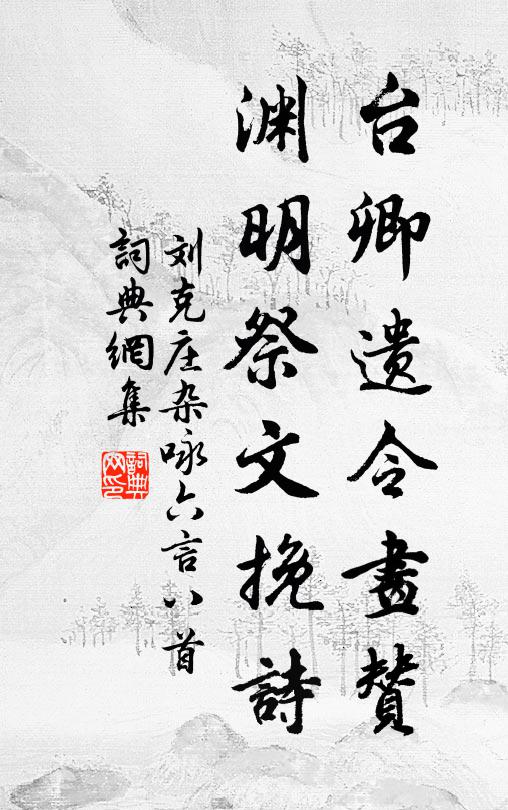 台卿遗令畫贊
渊明祭文挽詩
刘克庄杂咏六言八首
詞典網集
詞典網印